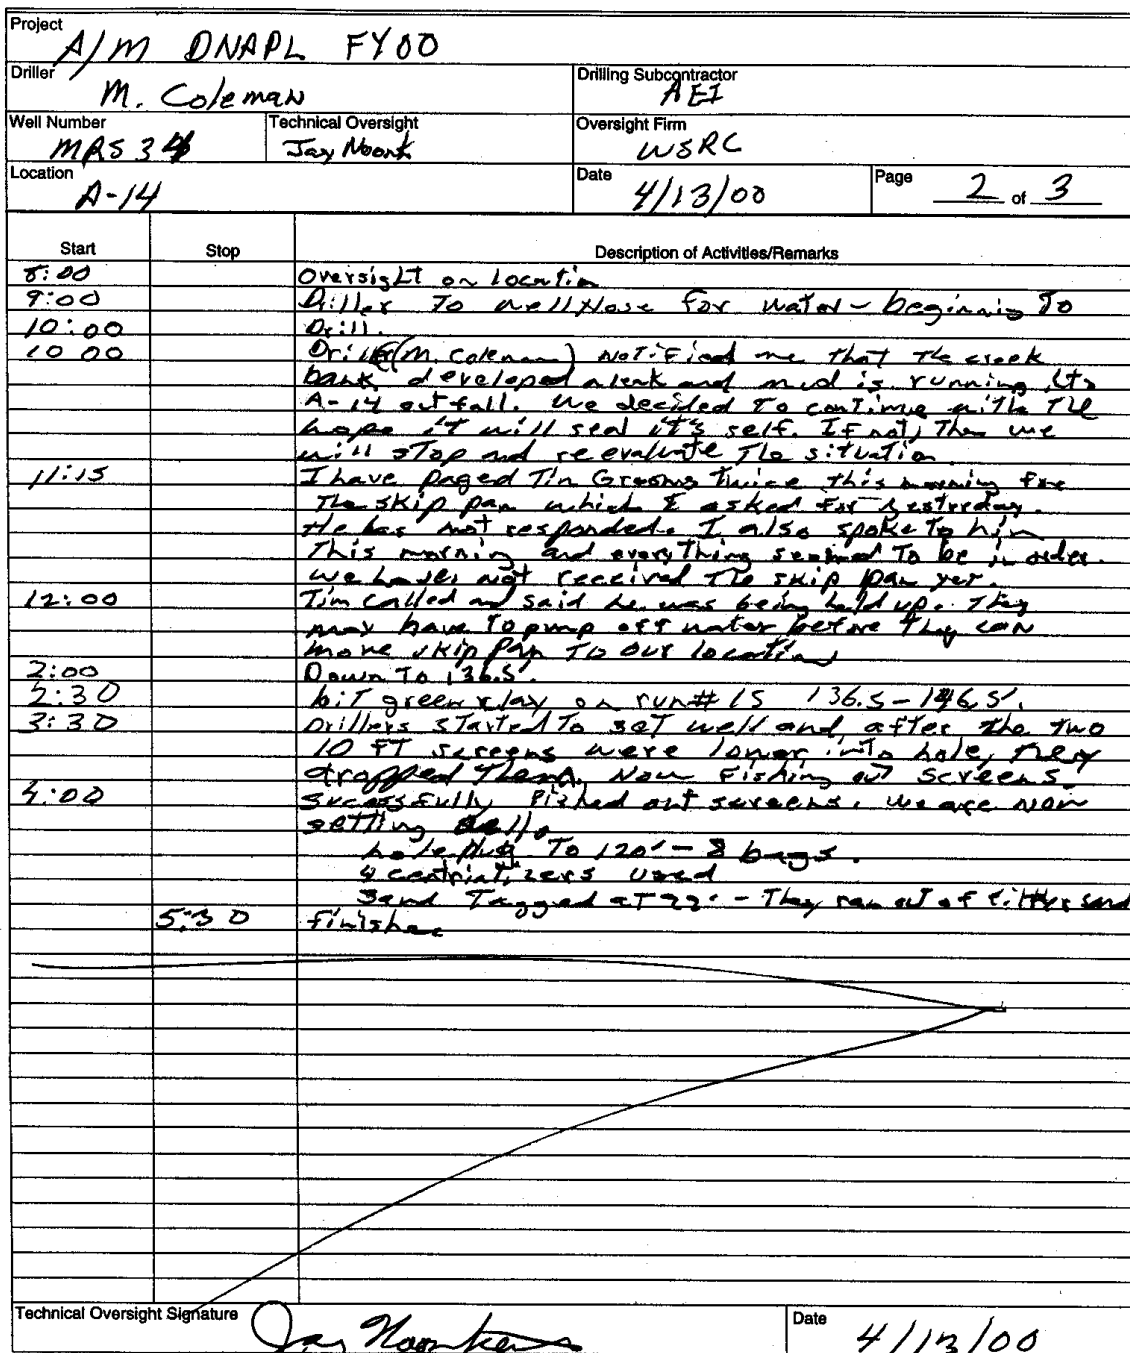 Project
A/M DNAPL FY00
Driller
M. Coleman
Drilling Subcontractor
AEI
Well Number
MRS 34
Technical Oversight
Jay Noonk
Oversight Firm
WSRC
Location
A-14
Date
4/13/00
Page 2 of 3
Start Stop Description of Activities/Remarks
8:00 Oversight on location
9:00 Driller To well Nose for water - beginning To
10:00 Drill.
10 00 Driller (M. Coleman) NoTified me that The creek
bank developed a leak and mud is running
A-14 outfall. We decided To continue with The
hope it will seal it's self. If not, Then we
will STop and reevaluate The situation
11:15 I have paged Tim Grooms Twice This morning for
The skip pan which I asked for yesterday.
He has not responded. I also spoke To him
This morning and everyThing seemed To be in order.
We have not received The skip pan yet.
12:00 Tim called and said he was being held up. They
may have To pump off water before They can
move skip Pan To our location
2:00 Down To 136.5'.
2:30 hiT green clay on run# 15 136.5 - 146.5'.
3:30 Drillers STarted To seT well and after the two
10 FT screens were lower into hole, They
dropped Them. Now Fishing out screens.
4:00 Sucessfully Fished out screens. We are now
setting
hole plug To 120' - 8 bags.
4 used
Sand Tagged at 22' - They ran out of sand
5:30 finished
Technical Oversight Signature
Jay Noonkes
Date
4/13/00